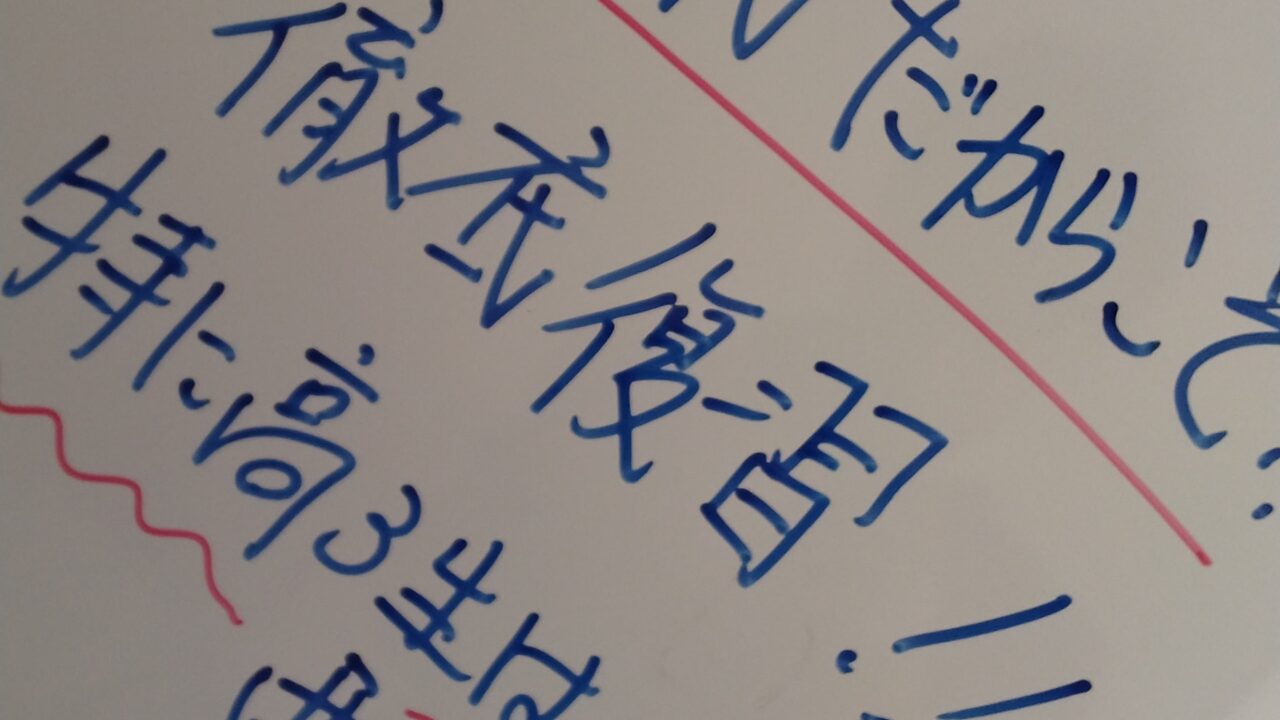 だからこそ
徹底復習!!
特に高3生は